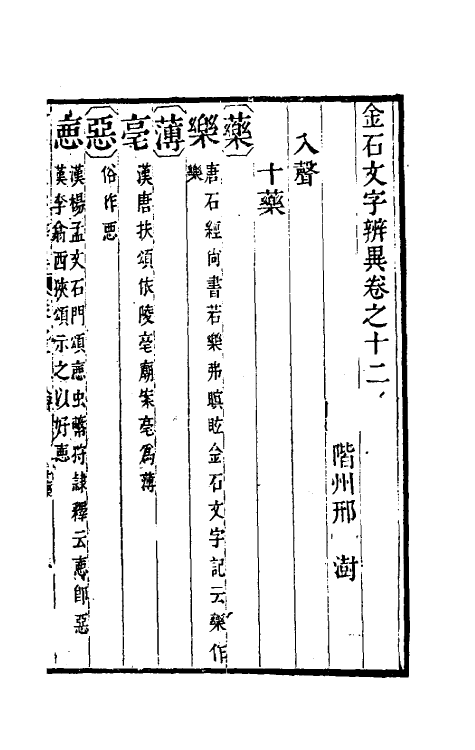 金石文字辨異卷之十二
階州邢　澍
入聲
十藥
藥
樂　唐石經尚書若樂弗瞑眩金石文字記云藥作
樂
薄
亳　漢唐扶頌依陵亳廟案亳為薄
惡　俗作悪
悪　漢楊孟文石門頌悪虫蔽狩隸釋云悪即惡
漢李翕西狹頌示之以好悪